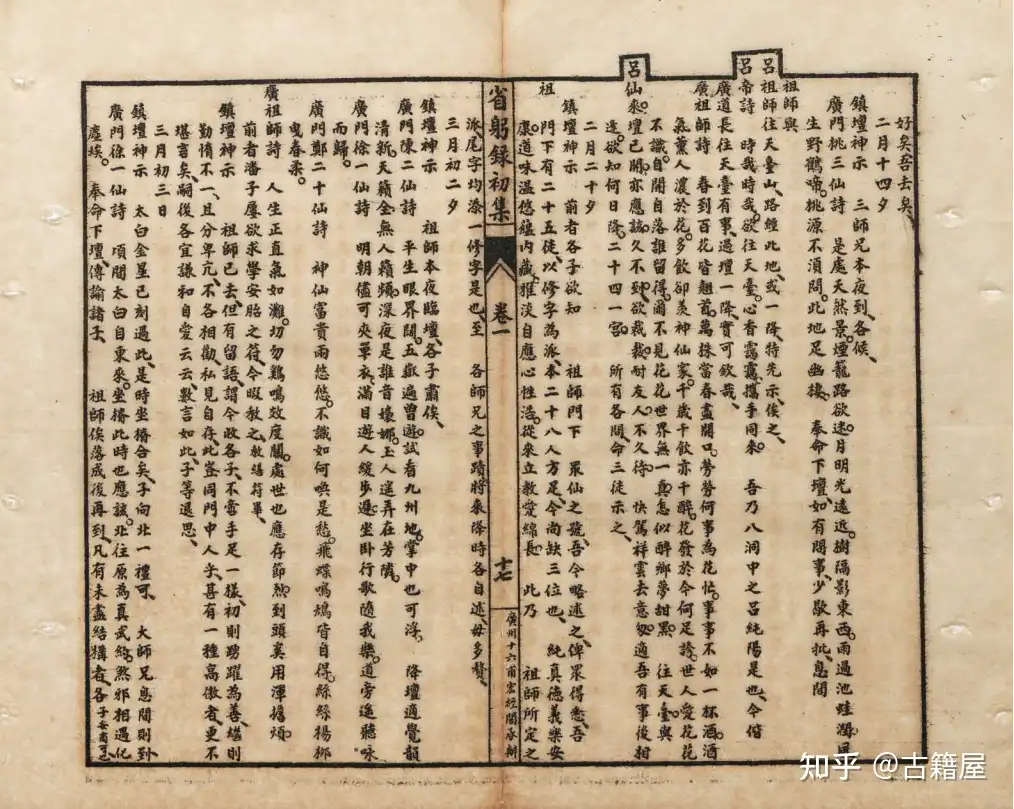 好矣吾去矣
二月十四夕
鎮壇神示　三師兄本夜到各候
廣門桃三仙詩　是處天然景煙籠路欲迷月明光遠近樹隔影東西雨過池蛙
生野鶴啼桃源不須問此地足幽棲　奉命下壇如有問事少歇再批息間
祖師與
呂祖師往天臺山路經此地或一降特先示俟之
呂帝詩　時哉時哉欲往天臺心香靄靄攜手同來　吾乃八洞中之呂純陽是也今偕
廣道長往天臺有事過壇一降實可欽哉
廣祖師詩　春到百花皆翹首萬株當春盡開口勞勞何事為花忙事事不如一杯酒酒
氣薰人濃於花多飲卻羨神仙家千歲千飲亦千醉花發於今何足誇世人愛花花
不識自開自落誰留得爾不見花花世界無一真怎似醉鄉夢甜黑　往天臺與
呂仙來壇已開亦應該久不到欲哉耐友人不久待　快駕祥雲去意匆適吾有事後相
逢欲知何日降二十四一宮　所有各問命三徒示之
二月二十夕
鎮壇神示　前者各子欲知　祖師門下　眾仙之號吾今略述之俾眾得悉吾
祖門下有二十五徒以修字為派本二十八人方足今尚缺三位也　純真德義樂安
康道味溫悠蘊內藏雅淡自應心性浩從來立教愛綿長　此乃　祖師所定之
省躬錄初集　卷一　十七　廣州十六甫宏經閣承辦
派尾字均添一修字是也至　各師兄之事蹟將來降時各自述毋多贅
三月初二夕
鎮壇神示　祖師本夜臨壇各子肅俟
廣門陳二仙詩　平生眼界闊五嶽遍曾遊試看九州地掌中也可浮　降壇適覺韻
清新天籟全無人籟頻深夜是誰音嫋娜玉人遙弄在芳隣
廣門徐一仙詩　明朝儘可夾單衣滿目遊人緩步遊坐卧行歌隨我樂道旁遥聽咏
而歸
廣門鄭二十仙詩　神仙富貴兩悠悠不識如何喚是愁飛蝶鳴鳩皆自得絲絲楊柳
曳春柔
廣祖師詩　人生正直氣如灘切勿鷄鳴效度關處世也應存節然到頭奚用渾擔煩
前者潘子屢欲求學安胎之符今暇教之教繕符畢
鎮壇神示　祖師已去但有留語謂今政各子不啻手足一樣初則踴躍為善繼則
勤惰不一且分卑亢不各相勸私見自存此豈同門中人乎甚有一種高傲者更不
堪言矣嗣後各宜謙和自愛云云數言如此子等退思
三月初三日
鎮壇神示　太白金星已刻過此是時坐糈合矣子向北一禮可　大師兄息間則到
廣門徐一仙詩　頃聞太白自東來坐糈此時也應該北往原為真武結煞邪相遇化
塵埃　奉命下壇傳諭諸子　祖師俟落成後再到凡有未盡結搆者各子